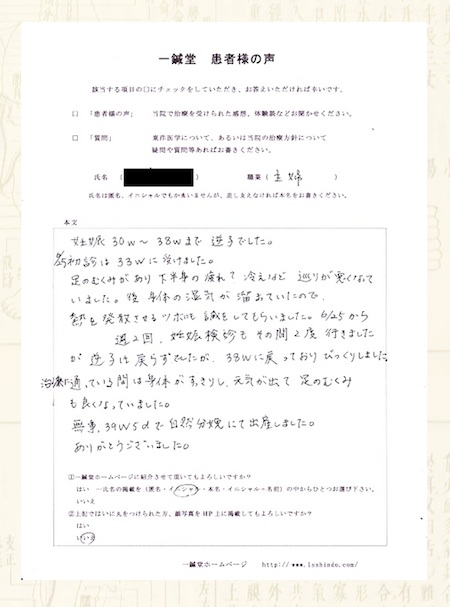 一鍼堂 患者様の声
該当する項目の□にチェックをしていただき、お答えいただければ幸いです。
□ 「患者様の声」 当院で治療を受けられた感想、体験談などお聞かせください。
□ 「質問」 東洋医学について、あるいは当院の治療方針について
疑問や質問等あればお書きください。
氏名 ( 職業 ( 主婦 )
氏名は匿名、イニシャルでもかまいませんが、差し支えなければ本名をお書きください。
本文
妊娠 30w～38wまで 逆子でした。
初診は 33wに 受けました。
足のむくみがあり 下半身の疲れて 冷えなど 巡りが悪くなって
いました。後 身体の湿気が 溜まっていたので、
熱を発散させるツボにも 鍼をしてもらいました。6/25から
週2回、妊娠検診も その間2度 行きました
が 逆子は 戻らずでしたが、38wに戻っており びっくりしました
治療に通っている間は身体がすっきりし、元気が出て 足のむくみ
も良くなっていました。
無事、39w5dで自然分娩にて出産しました。
ありがとうございました。
①一鍼堂ホームページに紹介させて頂いてもよろしいですか？
はい →氏名の掲載を (匿名・イニシャル・本名・イニシャル+名前) の中からひとつお選び下さい。
いいえ
②上記ではいに○をつけられた方、顔写真をHP上に掲載してもよろしいですか？
はい
いいえ
一鍼堂ホームページ http://www.isshindo.com/